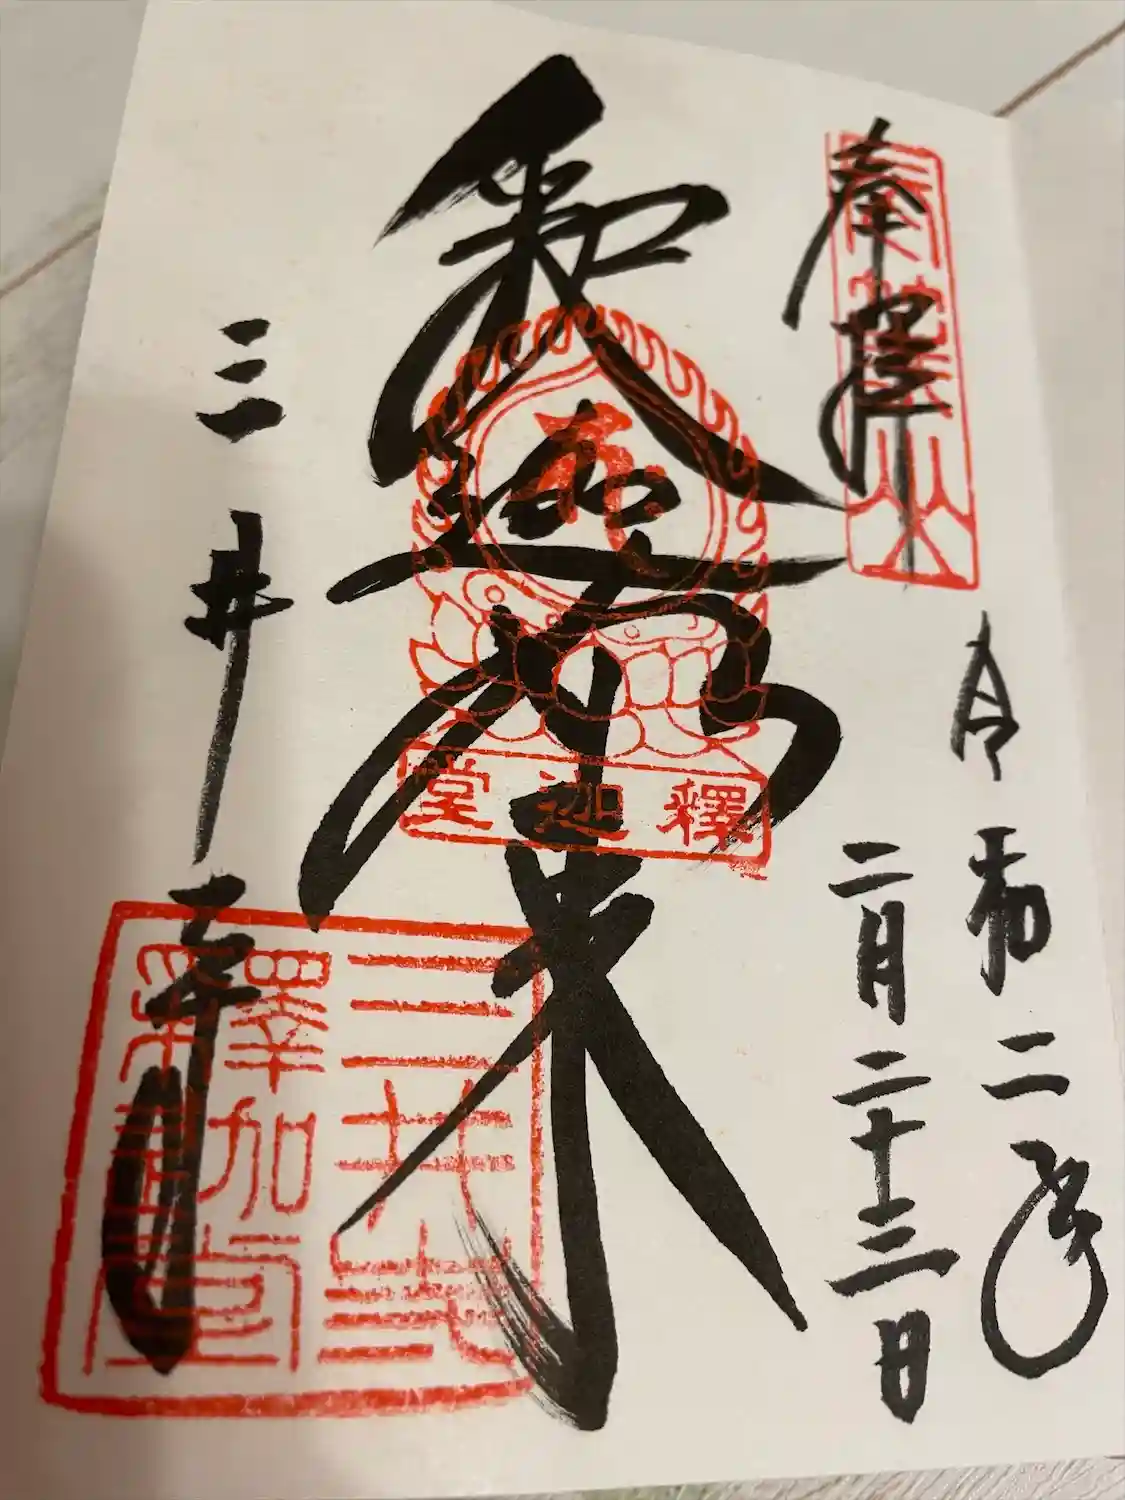 奉拝
令和二年
二月二十三日
釈迦如来
釋迦堂
三井寺
三井寺
釋迦堂